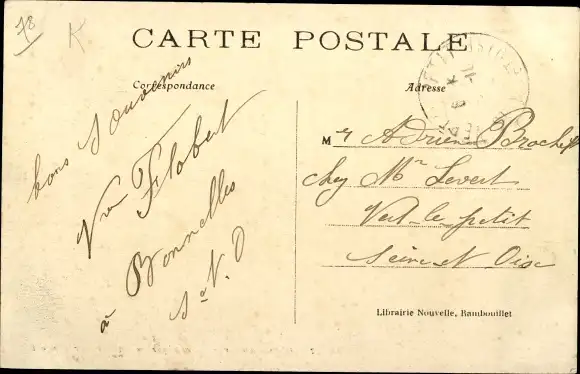 78
K
CARTE POSTALE
Correspondance
Adresse
bons Souvenirs
Vve Filobert
à Bonnelles
S et O
Mr Adrien Brochet
chez Mr Levert
Vert-le-petit
Seine et Oise
Librairie Nouvelle, Rambouillet